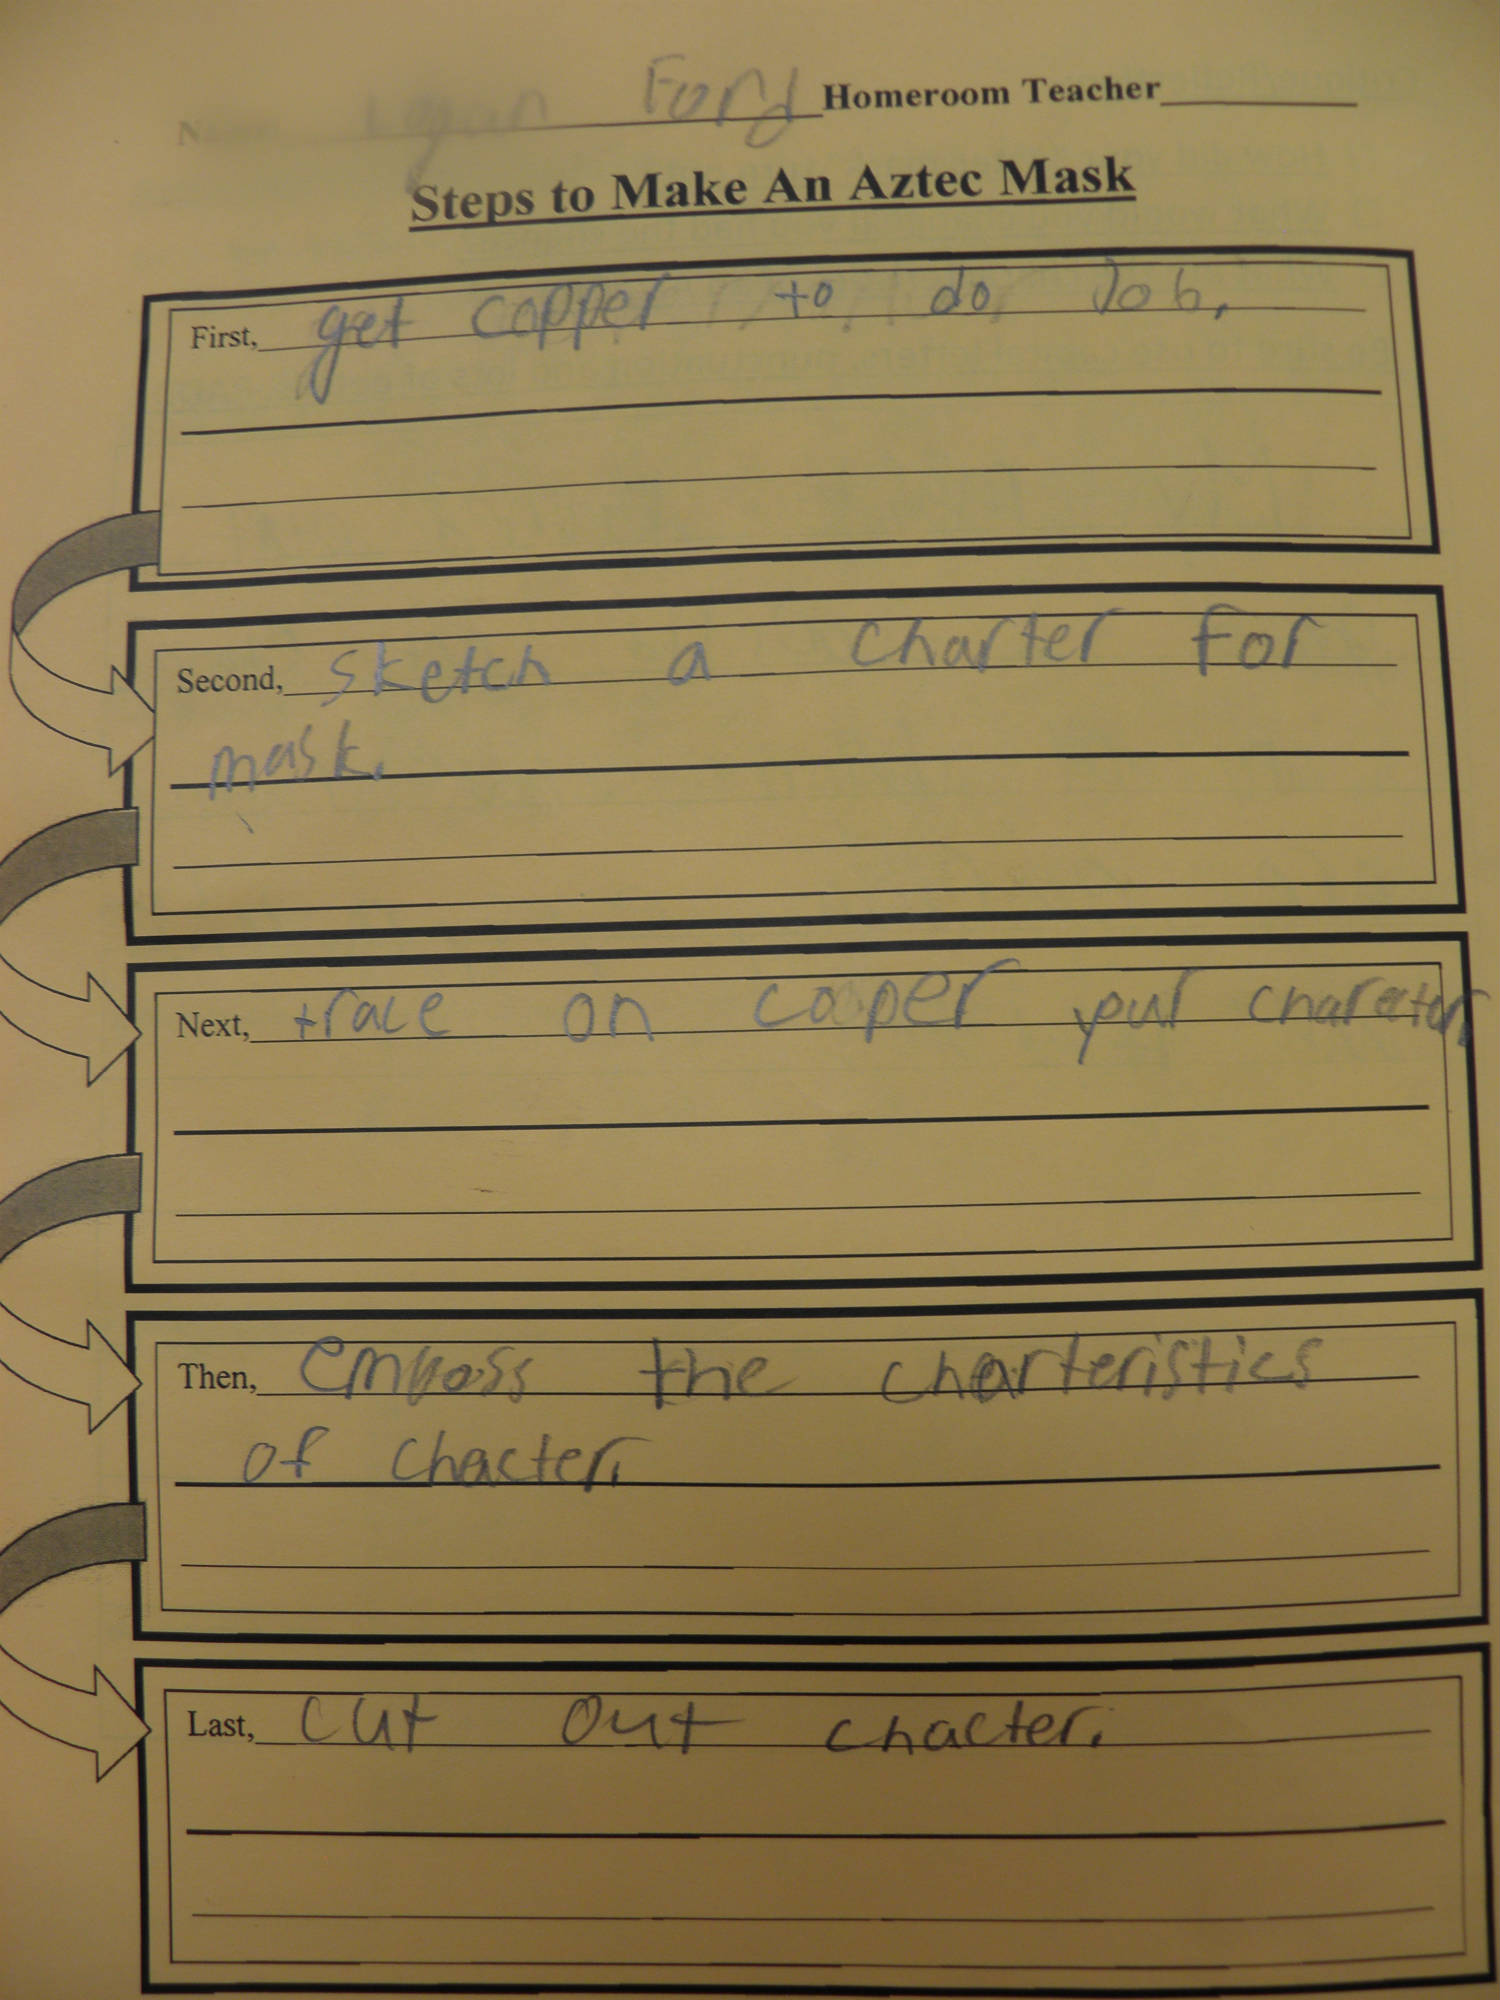 Ford Homeroom Teacher
Steps to Make An Aztec Mask
First, get copper to do Job.
Second, sketch a charter for
mask.
Next, trace on cooper your charater.
Then, emboss the charteristics
of chacter.
Last, cut out chacter.